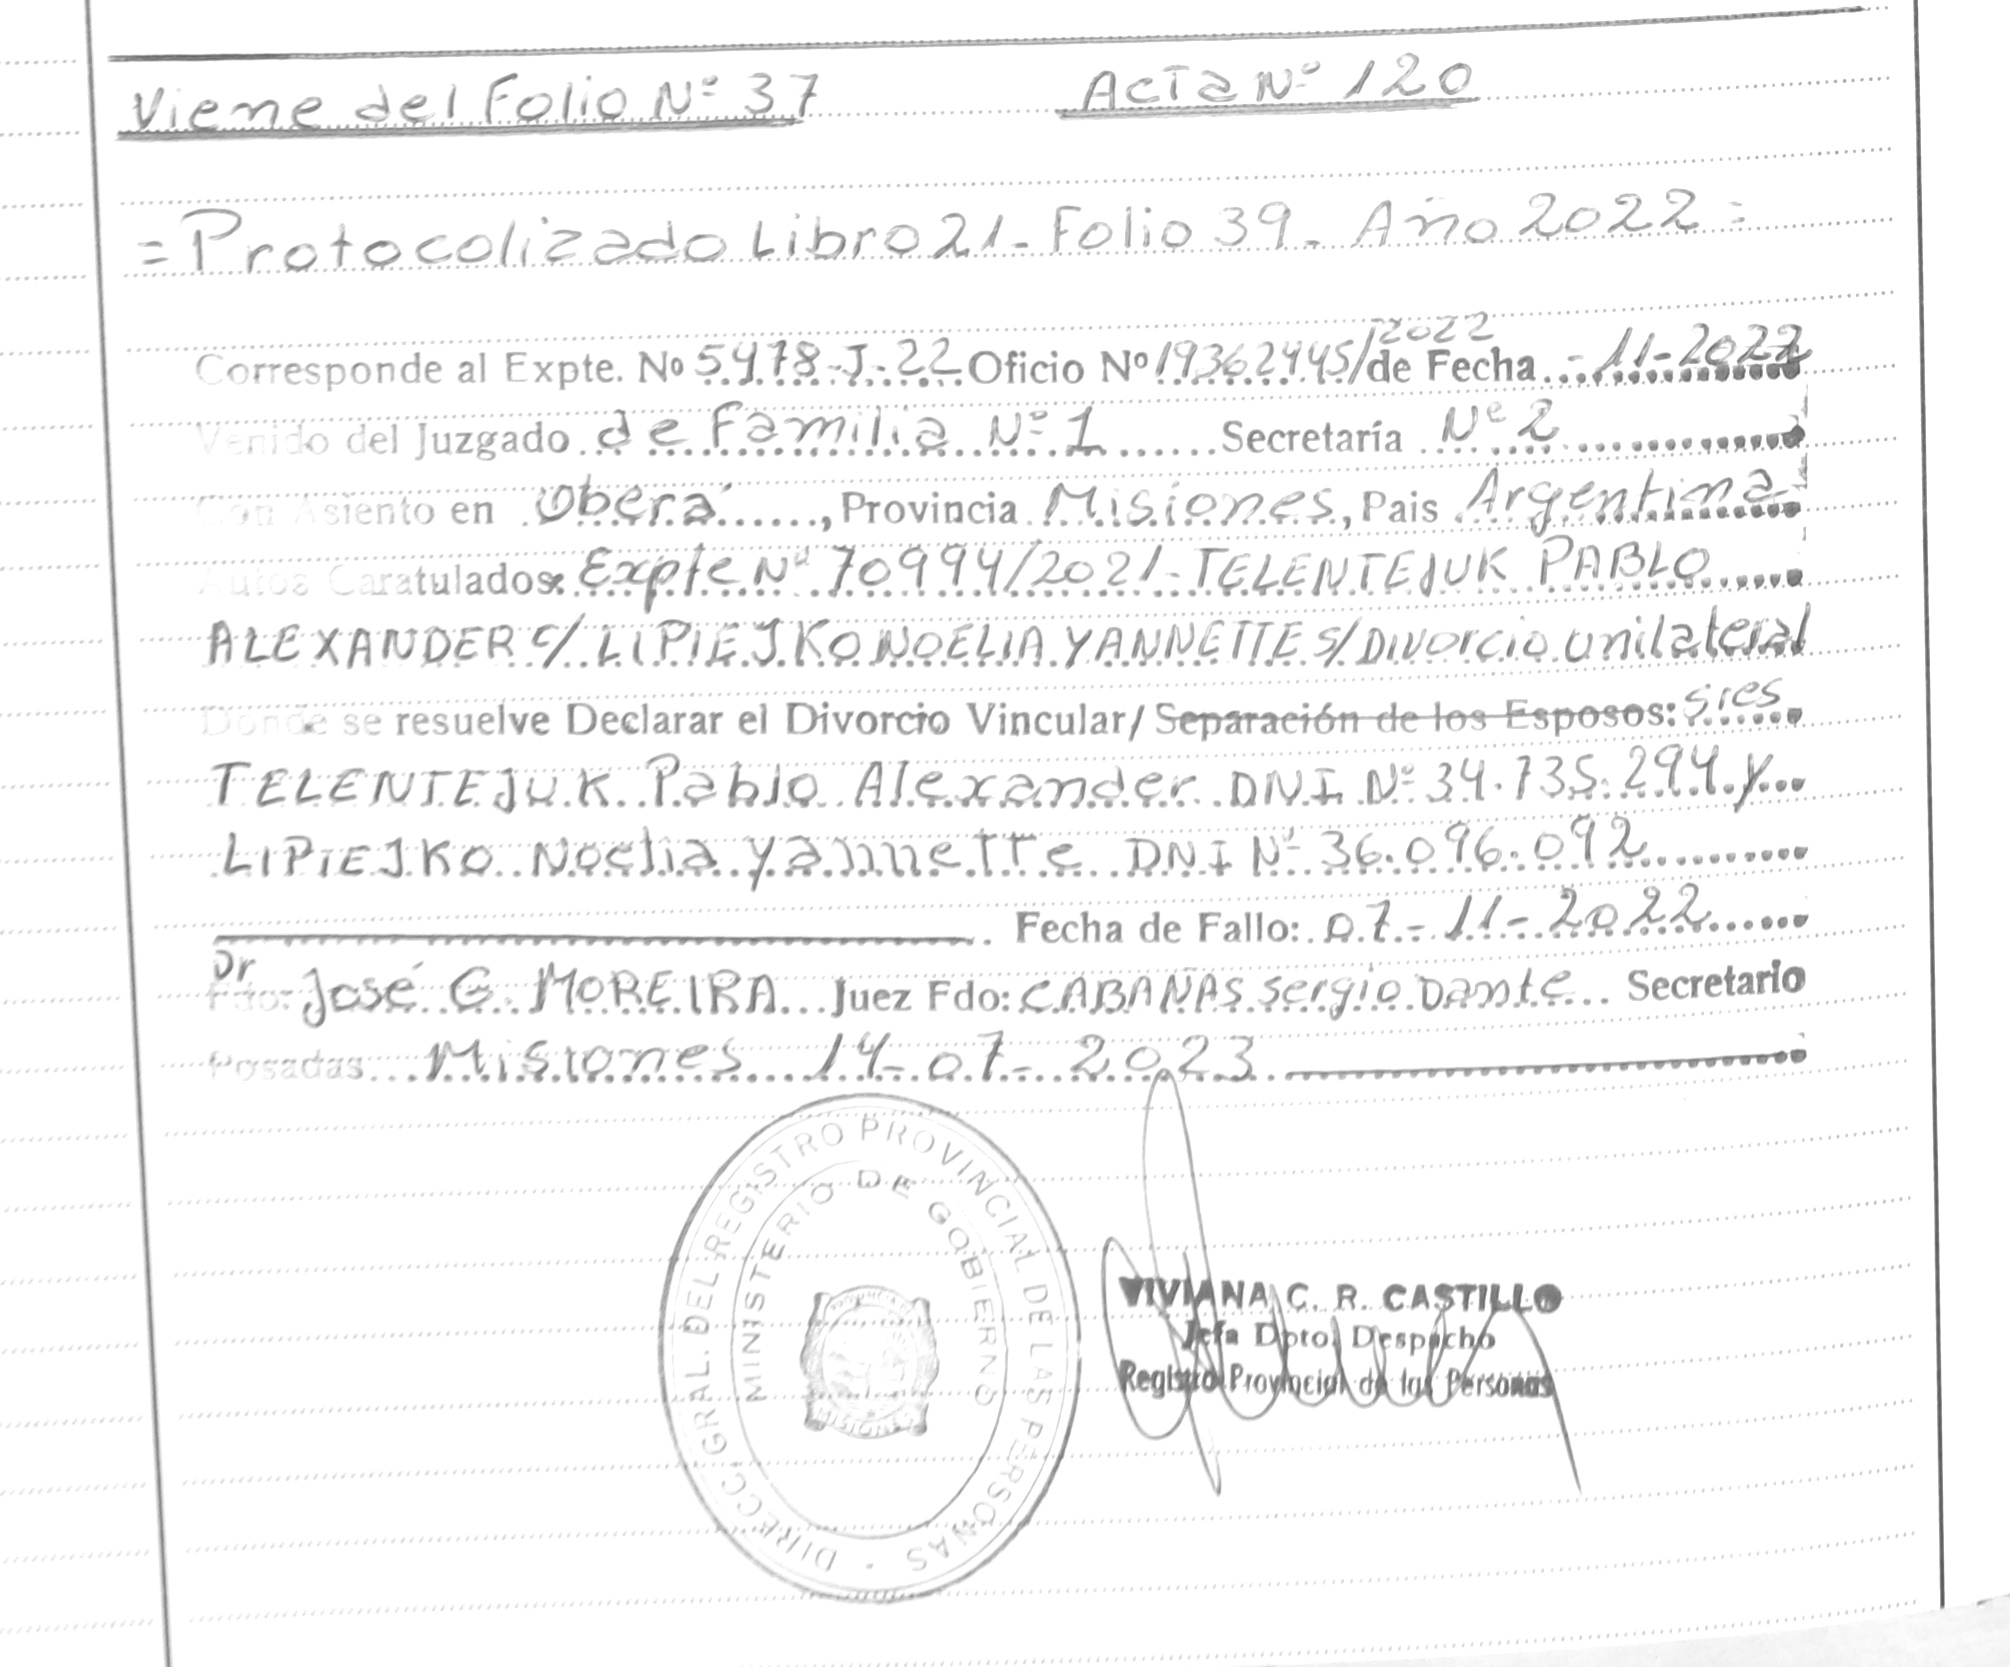 Viene del Folio Nº 37 Acta Nº 120
= Protocolizado Libro 21 - Folio 39 - Año 2022 =
Corresponde al Expte. Nº 5478-J-22 Oficio Nº 19362445/2022 de Fecha - 11-2022
Venido del Juzgado de Familia Nº 1 Secretaría Nº 2
Con Asiento en Oberá, Provincia Misiones, Pais Argentina
Autos Caratulados: Expte Nº 70994/2021 - TELENTEJUK PABLO
ALEXANDER c/ LIPIEJKO NOELIA YANNETTE s/ Divorcio unilateral
Donde se resuelve Declarar el Divorcio Vincular/ Separación de los Esposos: sres
TELENTEJUK Pablo Alexander DNI Nº 34.735.294 y
LIPIEJKO Noelia Yannette DNI Nº 36.096.092
Fecha de Fallo: 07-11-2022
Fdo: Dr José G. MOREIRA Juez Fdo: CABAÑAS Sergio Dante Secretario
Posadas Misiones 14-07-2023
DIRECC. GRAL. DEL REGISTRO PROVINCIAL DE LAS PERSONAS -
MINISTERIO DE GOBIERNO
PROVINCIA DE
MISIONES
VIVIANA C. R. CASTILLO
Jefa Dpto. Despacho
Registro Provincial de las Personas